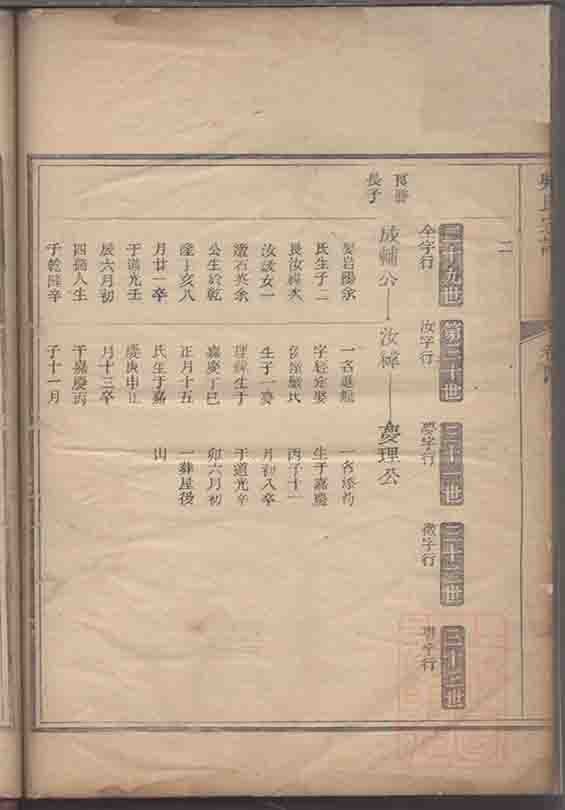 二
二十九世
全字行
第三十世
汝字行
三十一世
夢字行
三十二世
徵字行
三十三世
字行
長子
成輔公
汝
夢理公
娶岩陽余
氏生子二
長汝次
汝談女一
適石英余
公生於乾
隆丁亥八
月廿一卒
于道光壬
辰六月初
四孺人生
于乾隆辛
一名進
字娶
嚴氏
生子一夢
理生于
嘉慶丁巳
正月十五
氏生于嘉
慶庚申正
月十三卒
于嘉慶丙
子十一月
一名添灼
生于嘉慶
丙子十一
月初八卒
于道光辛
卯六月初
一葬屋後
山